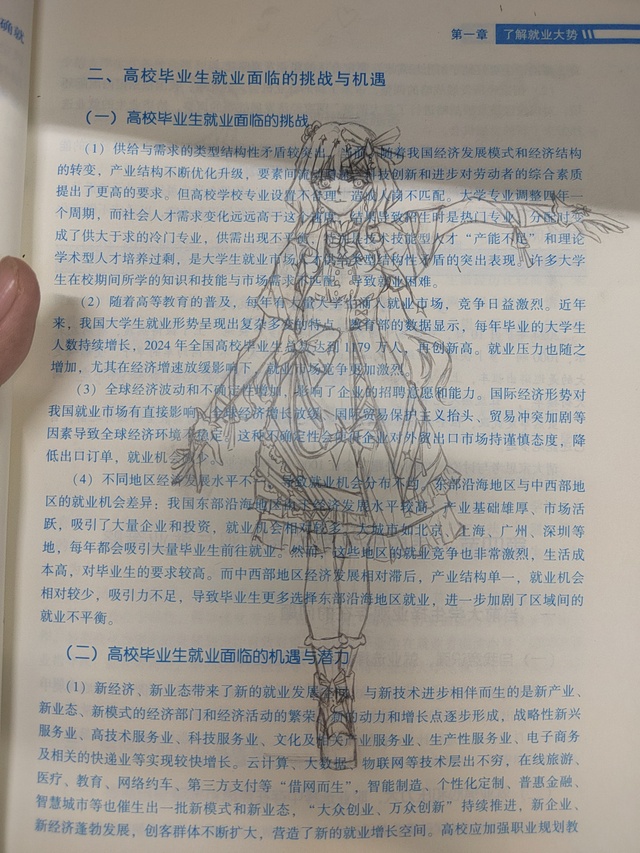 确就
第一章 了解就业大势
二、高校毕业生就业面临的挑战与机遇
（一）高校毕业生就业面临的挑战
（1）供给与需求的类型结构性矛盾较突出。当前，随着我国经济发展模式和经济结构
的转变，产业结构不断优化升级，要素间流动 创新和进步对劳动者的综合素质
提出了更高的要求。但高校学校专业设置不合理，造成人岗不匹配。大学专业调整四年一
个周期，而社会人才需求变化远远高于这个 结果导致招生时是热门专业，分配时变
成了供大于求的冷门专业，供需出现不平衡， 技术技能型人才“产能不足”和理论
学术型人才培养过剩，是大学生就业市场人才供给类型结构性矛盾的突出表现。许多大学
生在校期间所学的知识和技能与市场需求不匹配，导致就业困难。
（2）随着高等教育的普及，每年有大量大学生涌入就业市场，竞争日益激烈。近年
来，我国大学生就业形势呈现出复杂多变的特点。教育部的数据显示，每年毕业的大学生
人数持续增长，2024 年全国高校毕业生总数达到 1179 万人，再创新高。就业压力也随之
增加，尤其在经济增速放缓影响下，就业市场竞争更加激烈。
（3）全球经济波动和不确定性增加，影响了企业的招聘意愿和能力。国际经济形势对
我国就业市场有直接影响，全球经济增长放缓、国际贸易保护主义抬头、贸易冲突加剧等
因素导致全球经济环境不稳定。这种不确定性会 企业对外贸出口市场持谨慎态度，降
低出口订单，就业机会减少。
（4）不同地区经济发展水平不一，导致就业机会分布不均，东部沿海地区与中西部地
区的就业机会差异：我国东部沿海地区由于经济发展水平较高、产业基础雄厚、市场活
跃，吸引了大量企业和投资，就业机会相对较多。大城市如北京、上海、广州、深圳等
地，每年都会吸引大量毕业生前往就业。然而，这些地区的就业竞争也非常激烈，生活成
本高，对毕业生的要求较高。而中西部地区经济发展相对滞后，产业结构单一，就业机会
相对较少，吸引力不足，导致毕业生更多选择东部沿海地区就业，进一步加剧了区域间的
就业不平衡。
（二）高校毕业生就业面临的机遇与潜力
（1）新经济、新业态带来了新的就业发展空间。与新技术进步相伴而生的是新产业、
新业态、新模式的经济部门和经济活动的繁荣， 的动力和增长点逐步形成，战略性新兴
服务业、高技术服务业、科技服务业、文化及相关产业服务业、生产性服务业、电子商务
及相关的快递业等实现较快增长。云计算、大数据、物联网等技术层出不穷，在线旅游、
医疗、教育、网络约车、第三方支付等“借网而生”，智能制造、个性化定制、普惠金融、
智慧城市等也催生出一批新模式和新业态，“大众创业、万众创新”持续推进，新企业、
新经济蓬勃发展，创客群体不断扩大，营造了新的就业增长空间。高校应加强职业规划教